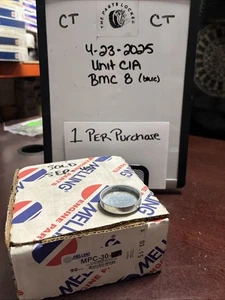 THE PARTS LOCKER
CT
CT
4-23-2025
Unit C1A
BMC 8 (BLUE)
1 PER PURCHASE
SOLD
MELLING
ENGINE PARTS
MELLING
MELLING
MPC-30-